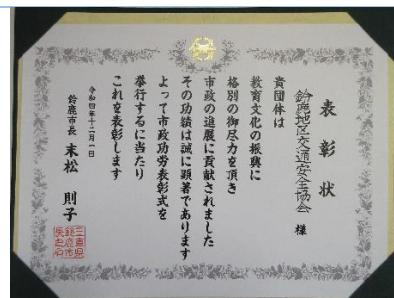 表彰状
鈴鹿地区交通安全協会 様
貴団体は
教育文化の振興に
格別の御尽力を頂き
市政の進展に貢献されました
その功績は誠に顕著であります
よって市政功労表彰式を
挙行するに当たり
これを表彰します
令和四年十二月一日
鈴鹿市長 末松 則子
三重県
鈴鹿市
長之印